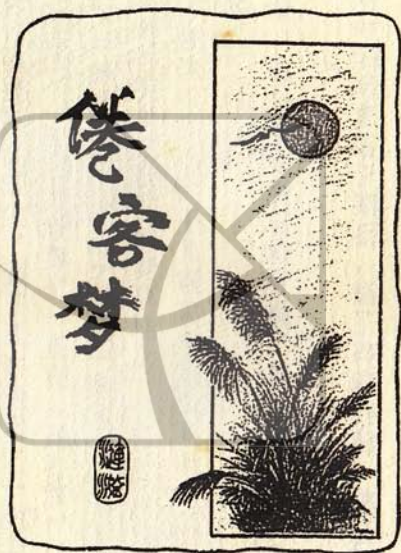 倦客梦
漣漪